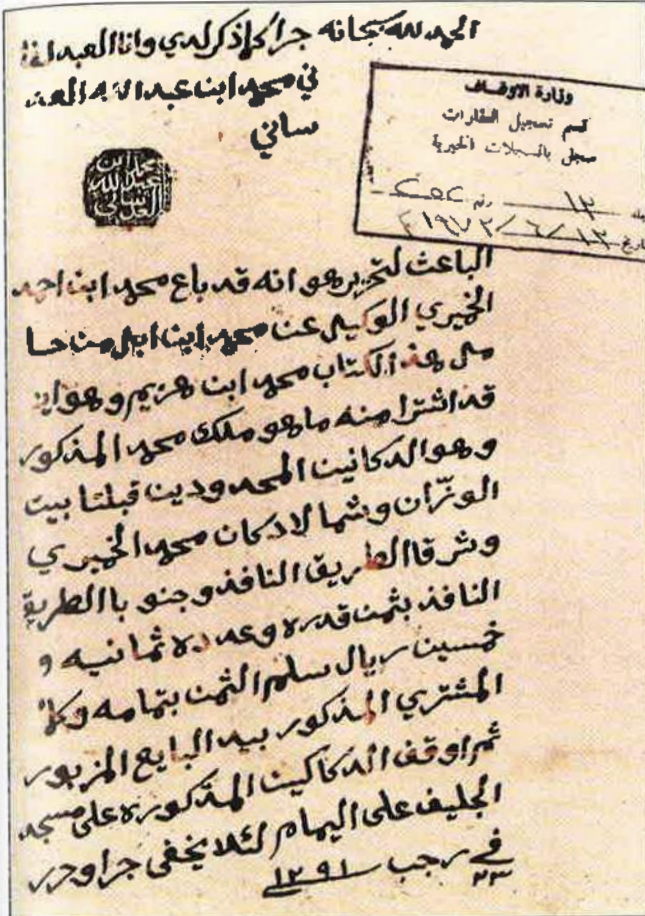 الحمد لله سبحانه جرا كما ذكر لدي وانا العبد الفا
ني محمد ابن عبد الله العد
ساني
محمد ابن عبد الله العدساني
وزارة الاوقاف
قسم تسجيل العقارات
سجل بالسجلات الخيرية
١٣ رقم
تاريخ ١٣/٦/١٩٧٢ م
الباعث لتحريره هو انه قد باع محمد ابن احمد
الخميري الوكيل عن محمد ابن ابل من حا
مل هذا الكتاب محمد ابن هزيم وهو ايظ
قد اشترا منه ما هو ملك محمد المذكور
وهو الدكانين المحدودين قبلتا بيت
الوزّان وشمالا دكان محمد الخميري
وشرقا الطريق النافذ وجنوبا الطريق
النافذ بثمن قدره وعدده ثمانيه و
خمسين ريال سلم الثمن بتمامه وكما
المشتري المذكور بيد البايع المزبور
ثم اوقف الدكاكين المذكوره على مسجد
الجليف على اليمام لئلا يخفى جرا وحرر
في ٢٣ رجب ١٢٩١